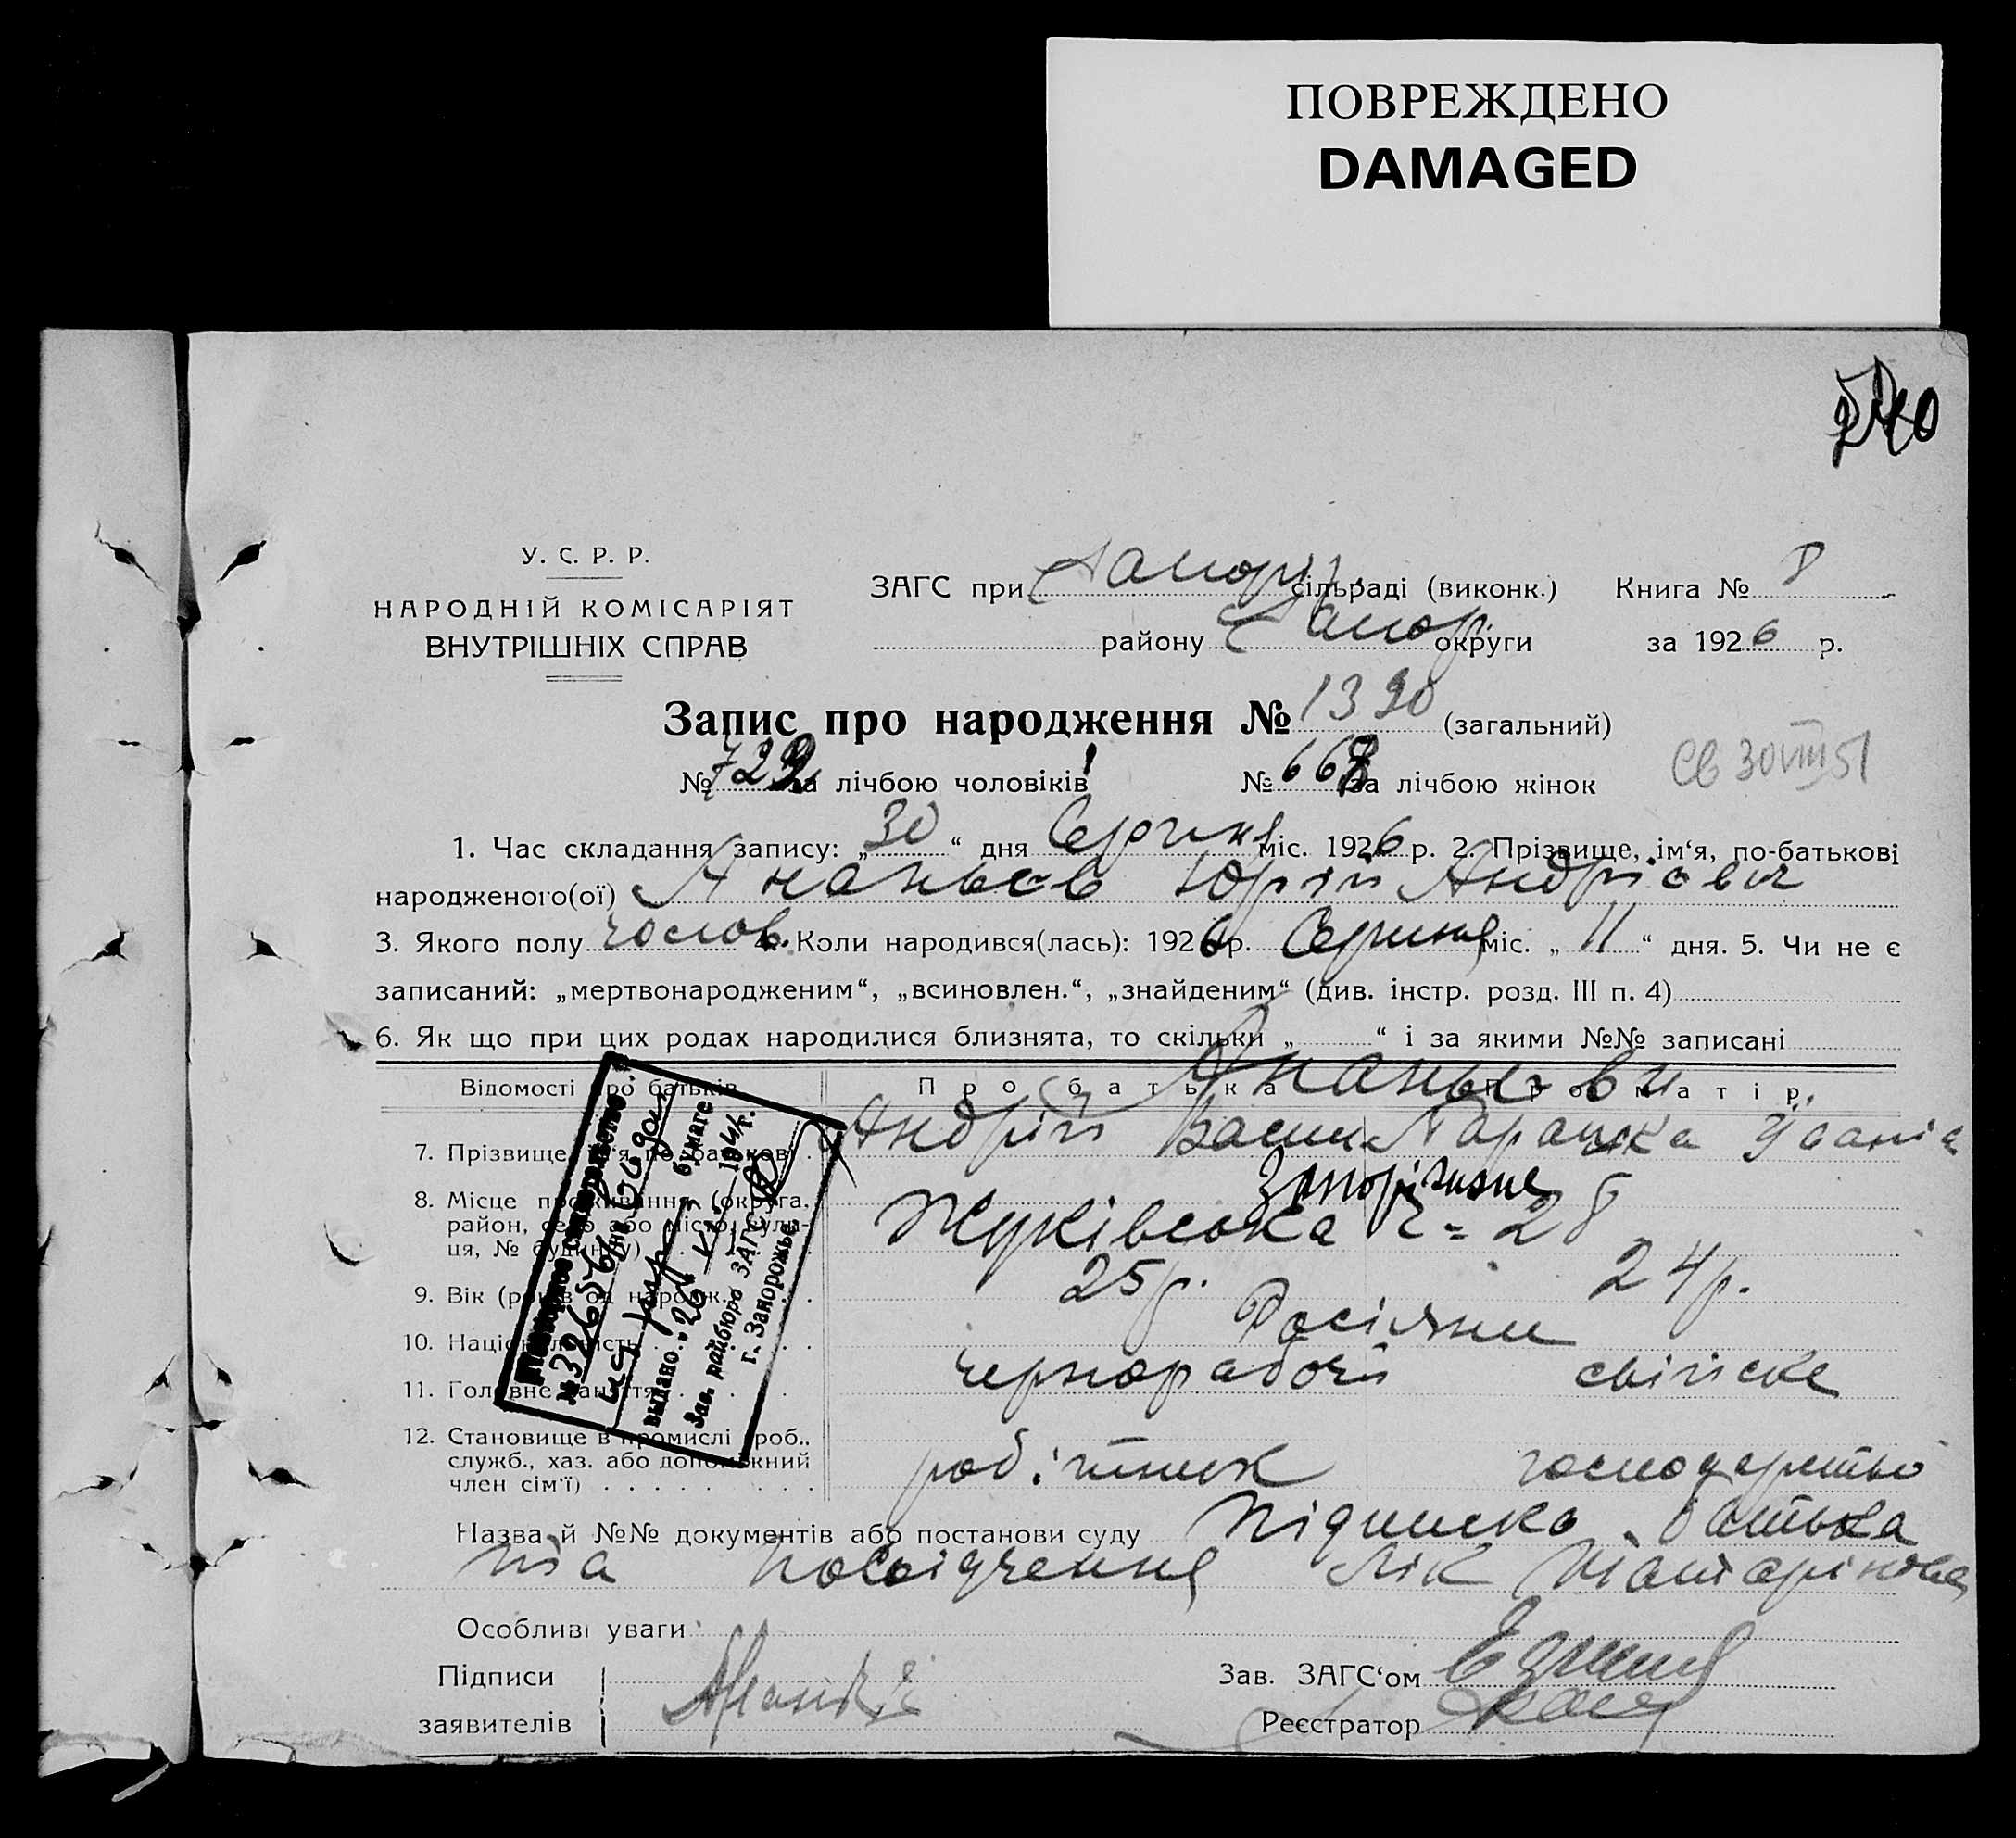 ПОВРЕЖДЕНО
DAMAGED
У. С. Р. Р.
НАРОДНІЙ КОМІСАРІЯТ
ВНУТРІШНІХ СПРАВ
ЗАГС при Запоріз. сільраді (виконк.) Книга № 8
району Запор. округи за 1926 р.
Запис про народження № 1390 (загальний)
№ 722 за лічбою чоловіків № 668 за лічбою жінок
Св 30 VIII 51
1. Час складання запису: „30“ дня Серпня міс. 1926 р. 2. Прізвище, ім‘я, по-батькові
народженого(ої) Ананьєв Юрій Андрієвич
3. Якого полу чолов. 4. Коли народився(лась): 1926 р. Серпня міс. „11“ дня. 5. Чи не є
записаний: „мертвонародженим“, „всиновлен.“, „знайденим“ (див. інстр. розд. III п. 4)
6. Як що при цих родах народилися близнята, то скільки „ “ і за якими №№ записані
Відомості про батьків Про батька Про матір
Ананьєви
7. Прізвище, ім‘я по батькові Андрій Васил Параска Іванів
8. Місце проживання (округа, Запоріжжя
район, село або місто, вули- Жуківська ч = 28
ця, № будинку)
9. Вік (років од народж. 25 р. 24 р.
10. Національність Росіяни
11. Головне заняття чернорабочий свійське
12. Становище в промислі (роб.,
служб., хаз. або допоміжний робітник господарство
член сім‘ї)
Повторное свидетельство
выдано „26“ VII 1944 г.
Зав. райбюро ЗАГС
г. Запорожье
Назва й №№ документів або постанови суду Підписка батька
та посвідчення лік
Особливі уваги
Підписи Зав. ЗАГС‘ом
заявителів Реєстратор